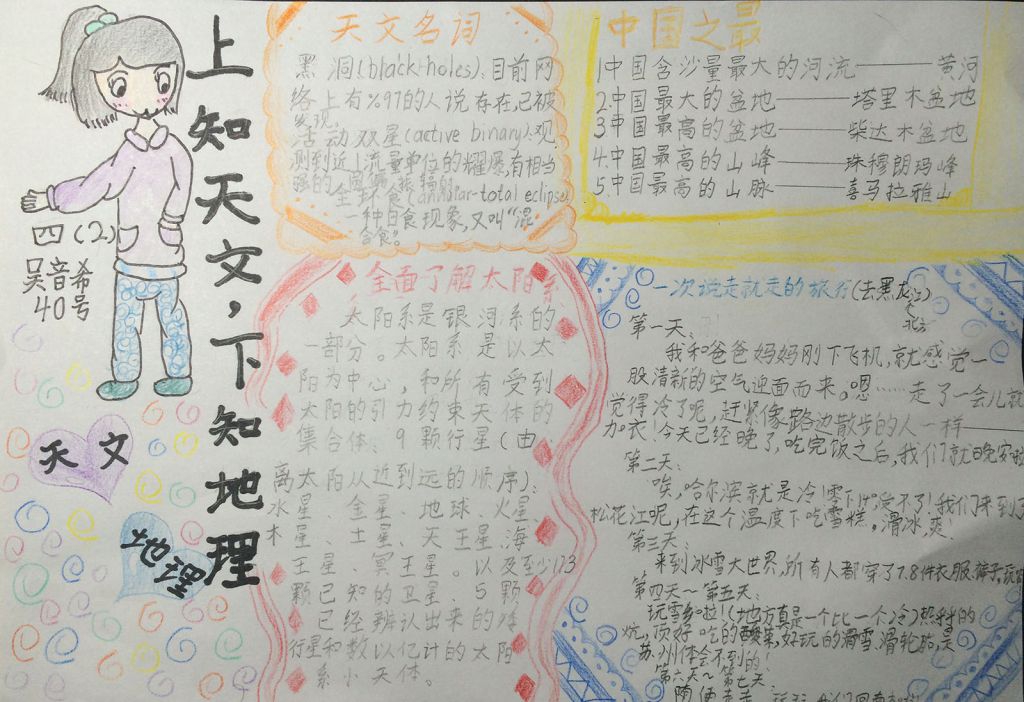 上知天文，下知地理
四(2)
吴音希
40号
天文
地理
天文名词
黑洞(black holes)：目前网
络上有%97的人说存在，已被
发现，
活动双星(active binary)：观
测到近！流量单位的耀爆，有相当
强的
全环食(annular-total eclipse)
一种日食现象，又叫“混
合食”。
中国之最
1中国含沙量最大的河流——黄河
2.中国最大的盆地——塔里木盆地
3中国最高的盆地——柴达木盆地
4.中国最高的山峰——珠穆朗玛峰
5中国最高的山脉——喜马拉雅山
全面了解太阳系
太阳系是银河系的
一部分。太阳系是以太
阳为中心，和所有受到
太阳的引力约束天体的
集合体：9颗行星（由
离太阳从近到远的顺序）：
水星、金星、地球、火星
木星、土星、天王星、海
王星、冥王星。以及至少173
颗已知的卫星、5颗
已经辨认出来的矮
行星和数以亿计的太阳
系小天体。
一次说走就走的旅行(去黑龙江)
北方
第一天：
我和爸爸妈妈刚下飞机，就感觉一
股清新的空气迎面而来。嗯……走了一会儿就
觉得冷了呢，赶紧像路边散步的人一样——
加衣！今天已经晚了，吃完饭之后，我们就晚安啦
第二天：
唉，哈尔滨就是冷！零下
我们来到了
松花江呢，在这个温度下吃雪糕。滑冰，爽．
第三天：
来到冰雪大世界，所有人都穿了7.8件衣服裤子，玩
第四天～第五天：
玩雪乡啦！(地方真是一个比一个冷)
炕，顶好吃的酸菜，好玩的滑雪．滑轮胎，是
苏州体会不到的！
第六天～第七天：